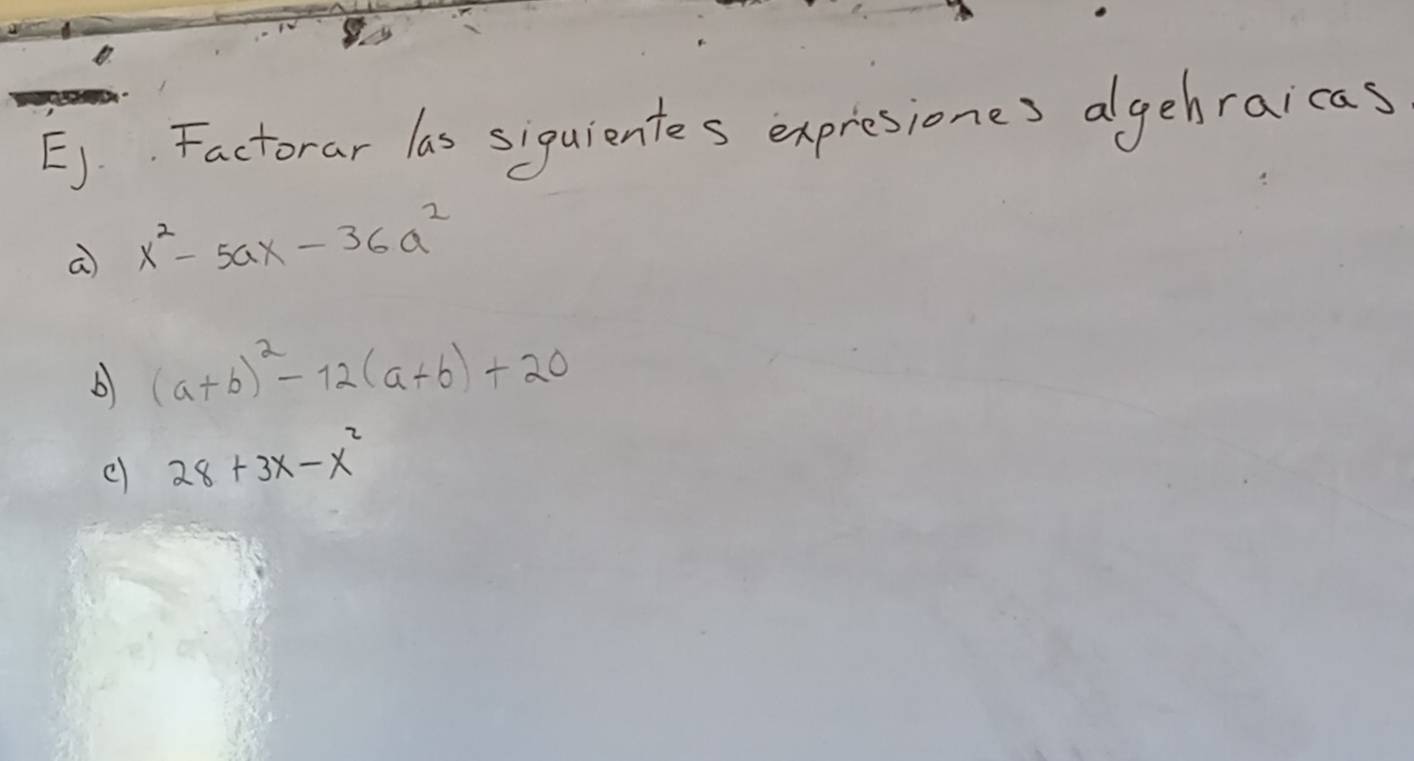 Ej. . Factorar las siguientes expresiones algebraicas.
a) x² - 5ax - 36a²
b) (a+b)² - 12(a+b) + 20
c) 28 + 3x - x²